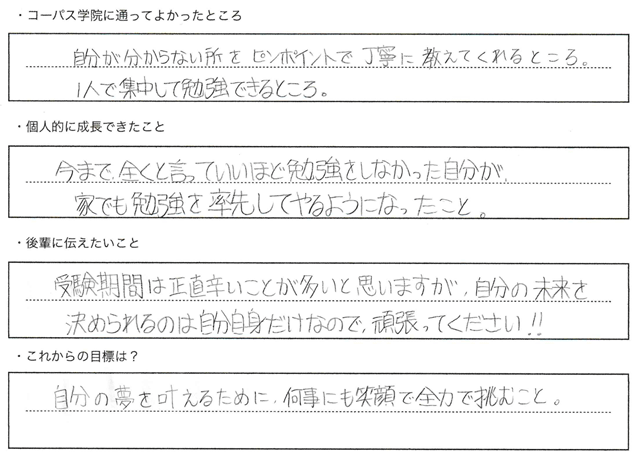 ・コーパス学院に通ってよかったところ
自分が分からない所をピンポイントで丁寧に教えてくれるところ。
1人で集中して勉強できるところ。
・個人的に成長できたこと
今まで、全くと言っていいほど勉強をしなかった自分が、
家でも勉強を率先してやるようになったこと。
・後輩に伝えたいこと
受験期間は正直辛いことが多いと思いますが、自分の未来を
決められるのは自分自身だけなので、頑張ってください!!
・これからの目標は？
自分の夢を叶えるために、何事にも笑顔で全力で挑むこと。